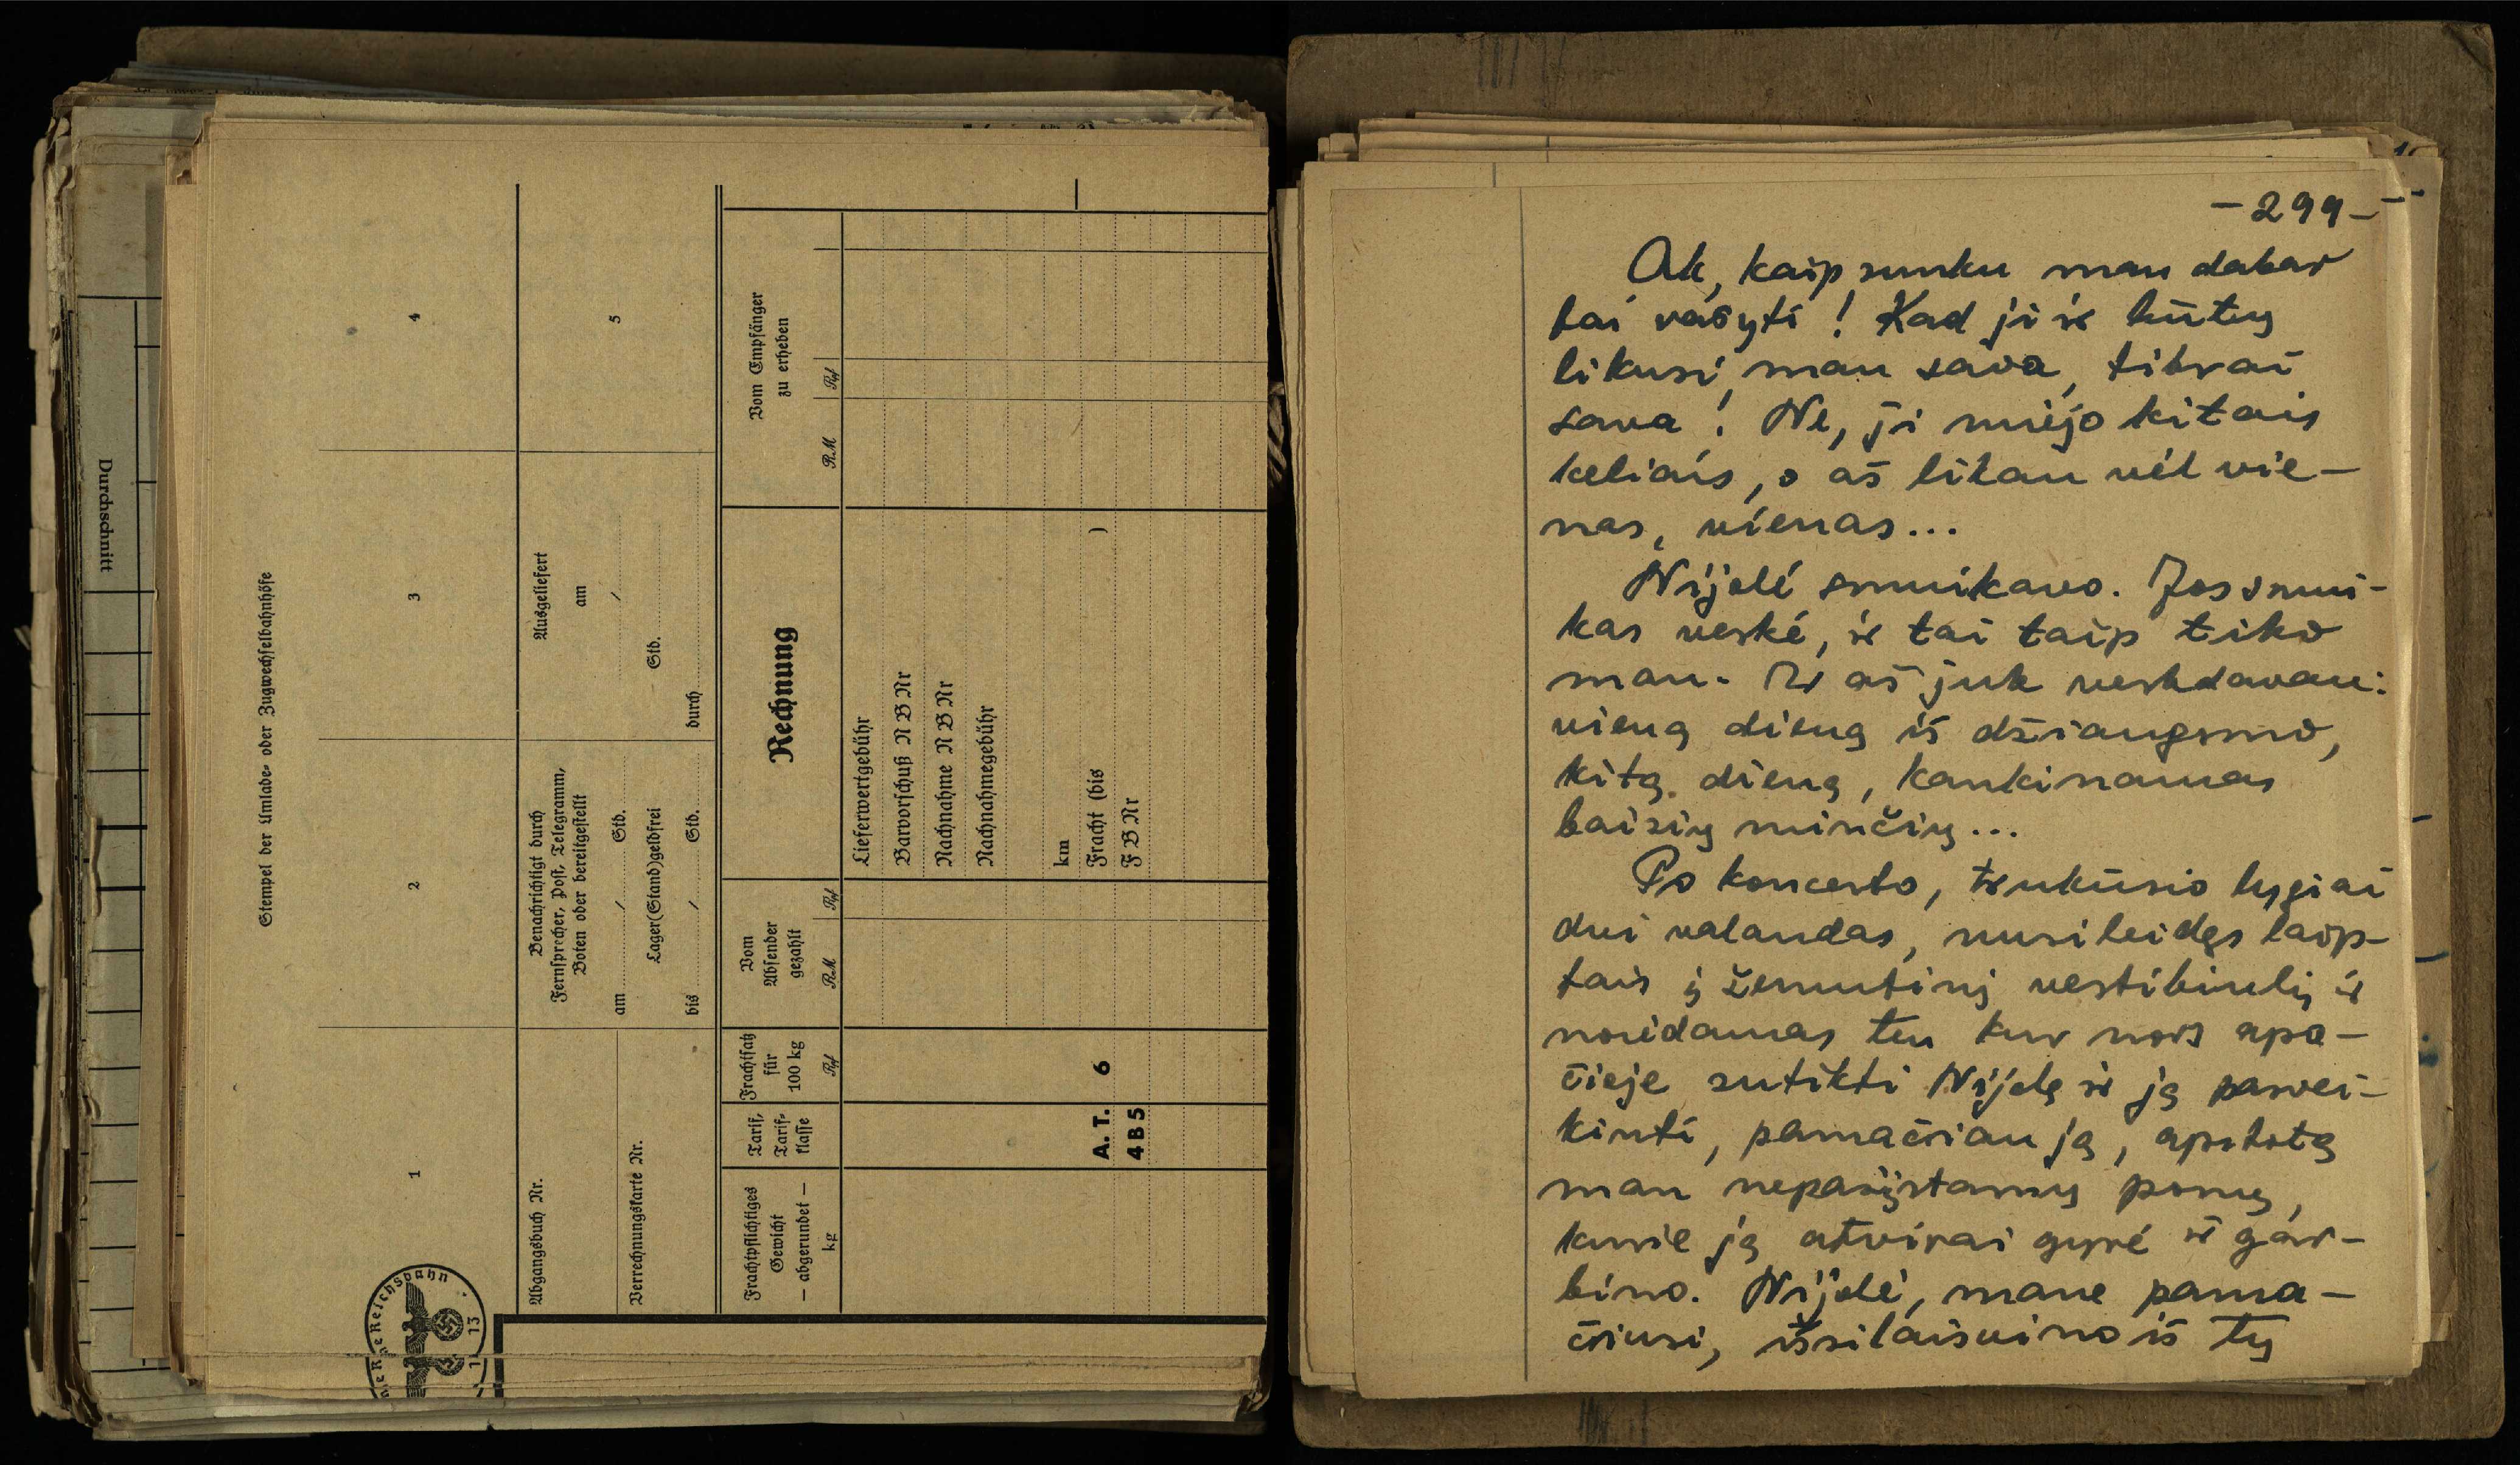 Durchschnitt
Stempel der Umlade- oder Zugwechselbahnhöfe
1
2
3
4
Abgangsbuch Nr.
Verrechnungskarte Nr.
Benachrichtigt durch
Fernsprecher, Post, Telegramm,
Boten oder bereitgestellt
am / Std.
Lager(Stand)geldfrei
bis / Std.
Ausgeliefert
am
/
Std.
durch
5
Frachtpflichtiges
Gewicht
— abgerundet —
kg
Tarif,
Tarif-
klasse
Frachtsatz
für
100 kg
Rpf
Vom
Absender
gezahlt
RM Rpf
Rechnung
Vom Empfänger
zu erheben
RM Rpf
Lieferwertgebühr
Barvorschuß N B Nr
Nachnahme N B Nr
Nachnahmegebühr
km
A. T. 6 Fracht (bis )
4 B 5 F B Nr
- 299 -
Ak, kaip sunku man dabar
tai rašyti! Kad ji ir būtų
likusi man sava, tikrai
sava! Ne, ji nuėjo kitais
keliais, o aš likau vėl vie-
nas, vienas...
Nijolė smuikavo. Jos smui-
kas verkė, ir tai taip tiko
man. Ir aš juk verkdavau:
vieną dieną iš džiaugsmo,
kitą dieną, kankinamas
baisių minčių...
Po koncerto, trukusio lygiai
dvi valandas, nusileidęs laip-
tais į žemutinį vestibiulį ir
norėdamas ten kur nors apa-
čioje sutikti Nijolę ir ją pasvei-
kinti, pamačiau ją, apstotą
man nepažįstamų ponų,
kurie ją atvirai gyrė ir gar-
bino. Nijolė, mane pama-
čiusi, išsilaisvino iš tų